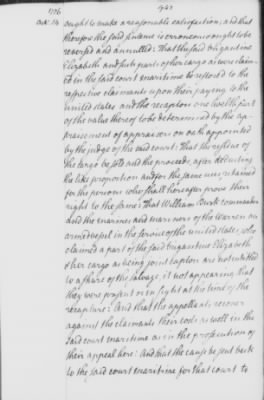 1783
1776
Oct. 14
ought to make a reasonable satisfaction; and that
therefore the said sentence is erroneous ought to be
reversed and annulled: That the said brigantine
Elizabeth and such parts of her cargo as were claim
ed in the said court maritime be restored to the
respective claimants upon their paying to the
united states and the recaptors one twelfth part
of the value thereof to be determined by the ap
praisement of appraisers on oath appointed
by the judge of the said court: That the residue of
the cargo be sold and the proceeds, after deducting
the like proportion and for the same uses, retained
for the persons who shall hereafter prove their
right to the same: That William Burk commander
and the marines and mariners of the Warren an
armed vessel in the service of the united states, who
claimed a part of the said brigantine Elizabeth
& her cargo as being joint captors are not entitled
to a share of the salvage, it not appearing that
they were present or in sight at the time of the
recapture: And that the appellants recover
against the claimants their costs as well in the
said court maritime as in the prosecution of
their appeal here: And that the cause be sent back
to the said court maritime for that court to